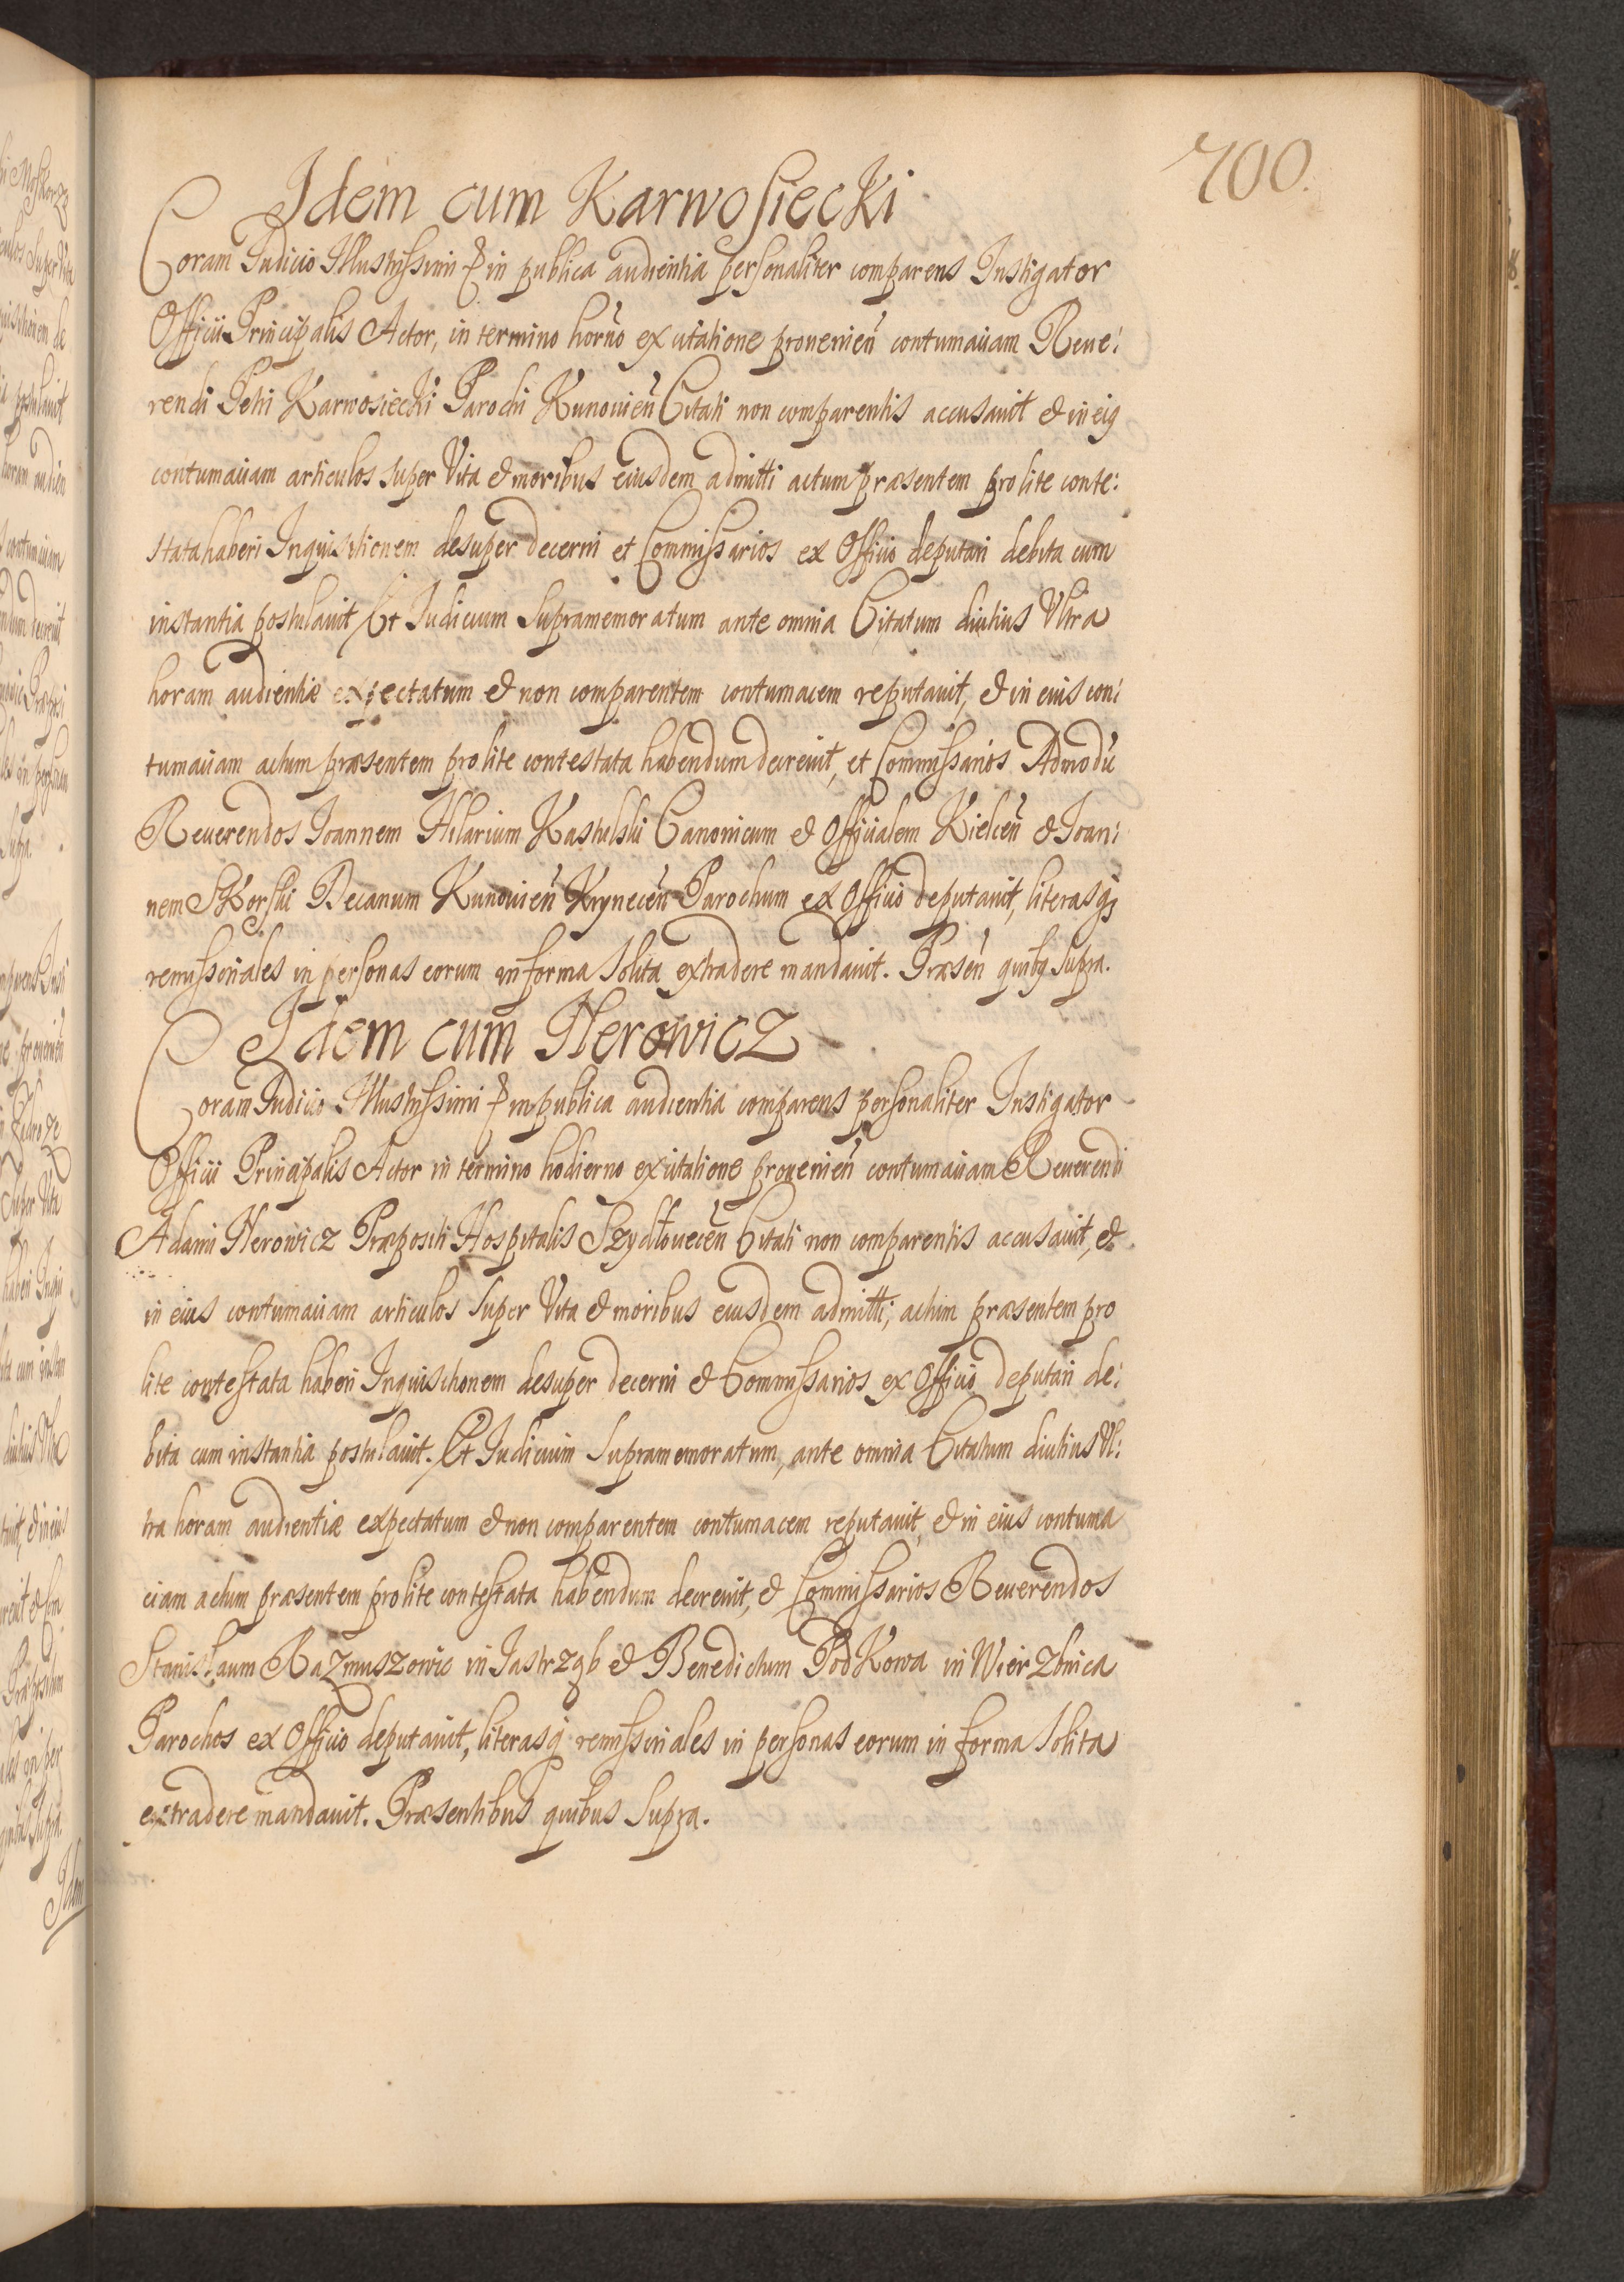 700.
Idem cum Karwosiecki
Coram Iudicio Illustrissimi & in publica audientia personaliter comparens Instigator
Officii Principalis Actor, in termino horno ex citatione provenien contumaciam Reve:
rendi Petri Karwosiecki Parochi Kunovien Citati non comparentis accusavit & in eiq
contumaciam articulos super Vita & moribus eiusdem admitti actum præsentem pro lite conte:
stata haberi Inquisitionem desuper decerni et Commissarios ex Officio deputari debita cum
instantia postulavit Et Iudicium Supramemoratum ante omnia Citatum diutius Ultra
horam audientiæ expectatum & non comparentem contumacem reputavit, & in eius con:
tumaciam actum præsentem pro lite contestata habendum decrevit, et Commissarios Admodu
Reverendos Ioannem Hilarium Kastelski Canonicum & Officialem Kielcen & Ioan:
nem Skorski Decanum Kunovien Krynecen Parochum ex Officio deputavit, literasq
remissoriales in personas eorum in forma Solita extradere mandavit. Præsen quibq Supra.
Idem cum Nerowicz
Coram Iudicio Illustrissimi & in publica audientia comparens personaliter Instigator
Officii Principalis Actor in termino hodierno ex citatione provenien contumaciam Reverendi
Adami Nerowicz Præpositi Hospitalis Szydlovecen Citati non comparentis accusavit, &
in eius contumaciam articulos Super Vita & moribus eiusdem admitti, actum præsentem pro
lite contestata haberi Inquisitionem desuper decerni & Commissarios ex Officio deputari de:
bita cum instantia postulavit. Et Iudicium Supramemoratum, ante omnia Citatum diutius Ul:
tra horam audientiæ expectatum & non comparentem contumacem reputavit, & in eius contuma
ciam actum præsentem pro lite contestata habendum decrevit, & Commissarios Reverendos
Stanislaum Razmuszowic in Iastrząb & Benedictum Podkowa in Wierzbnica
Parochos ex Officio deputavit, literasq remissoriales in personas eorum in forma Solita
extradere mandavit. Præsentibus quibus Supra.